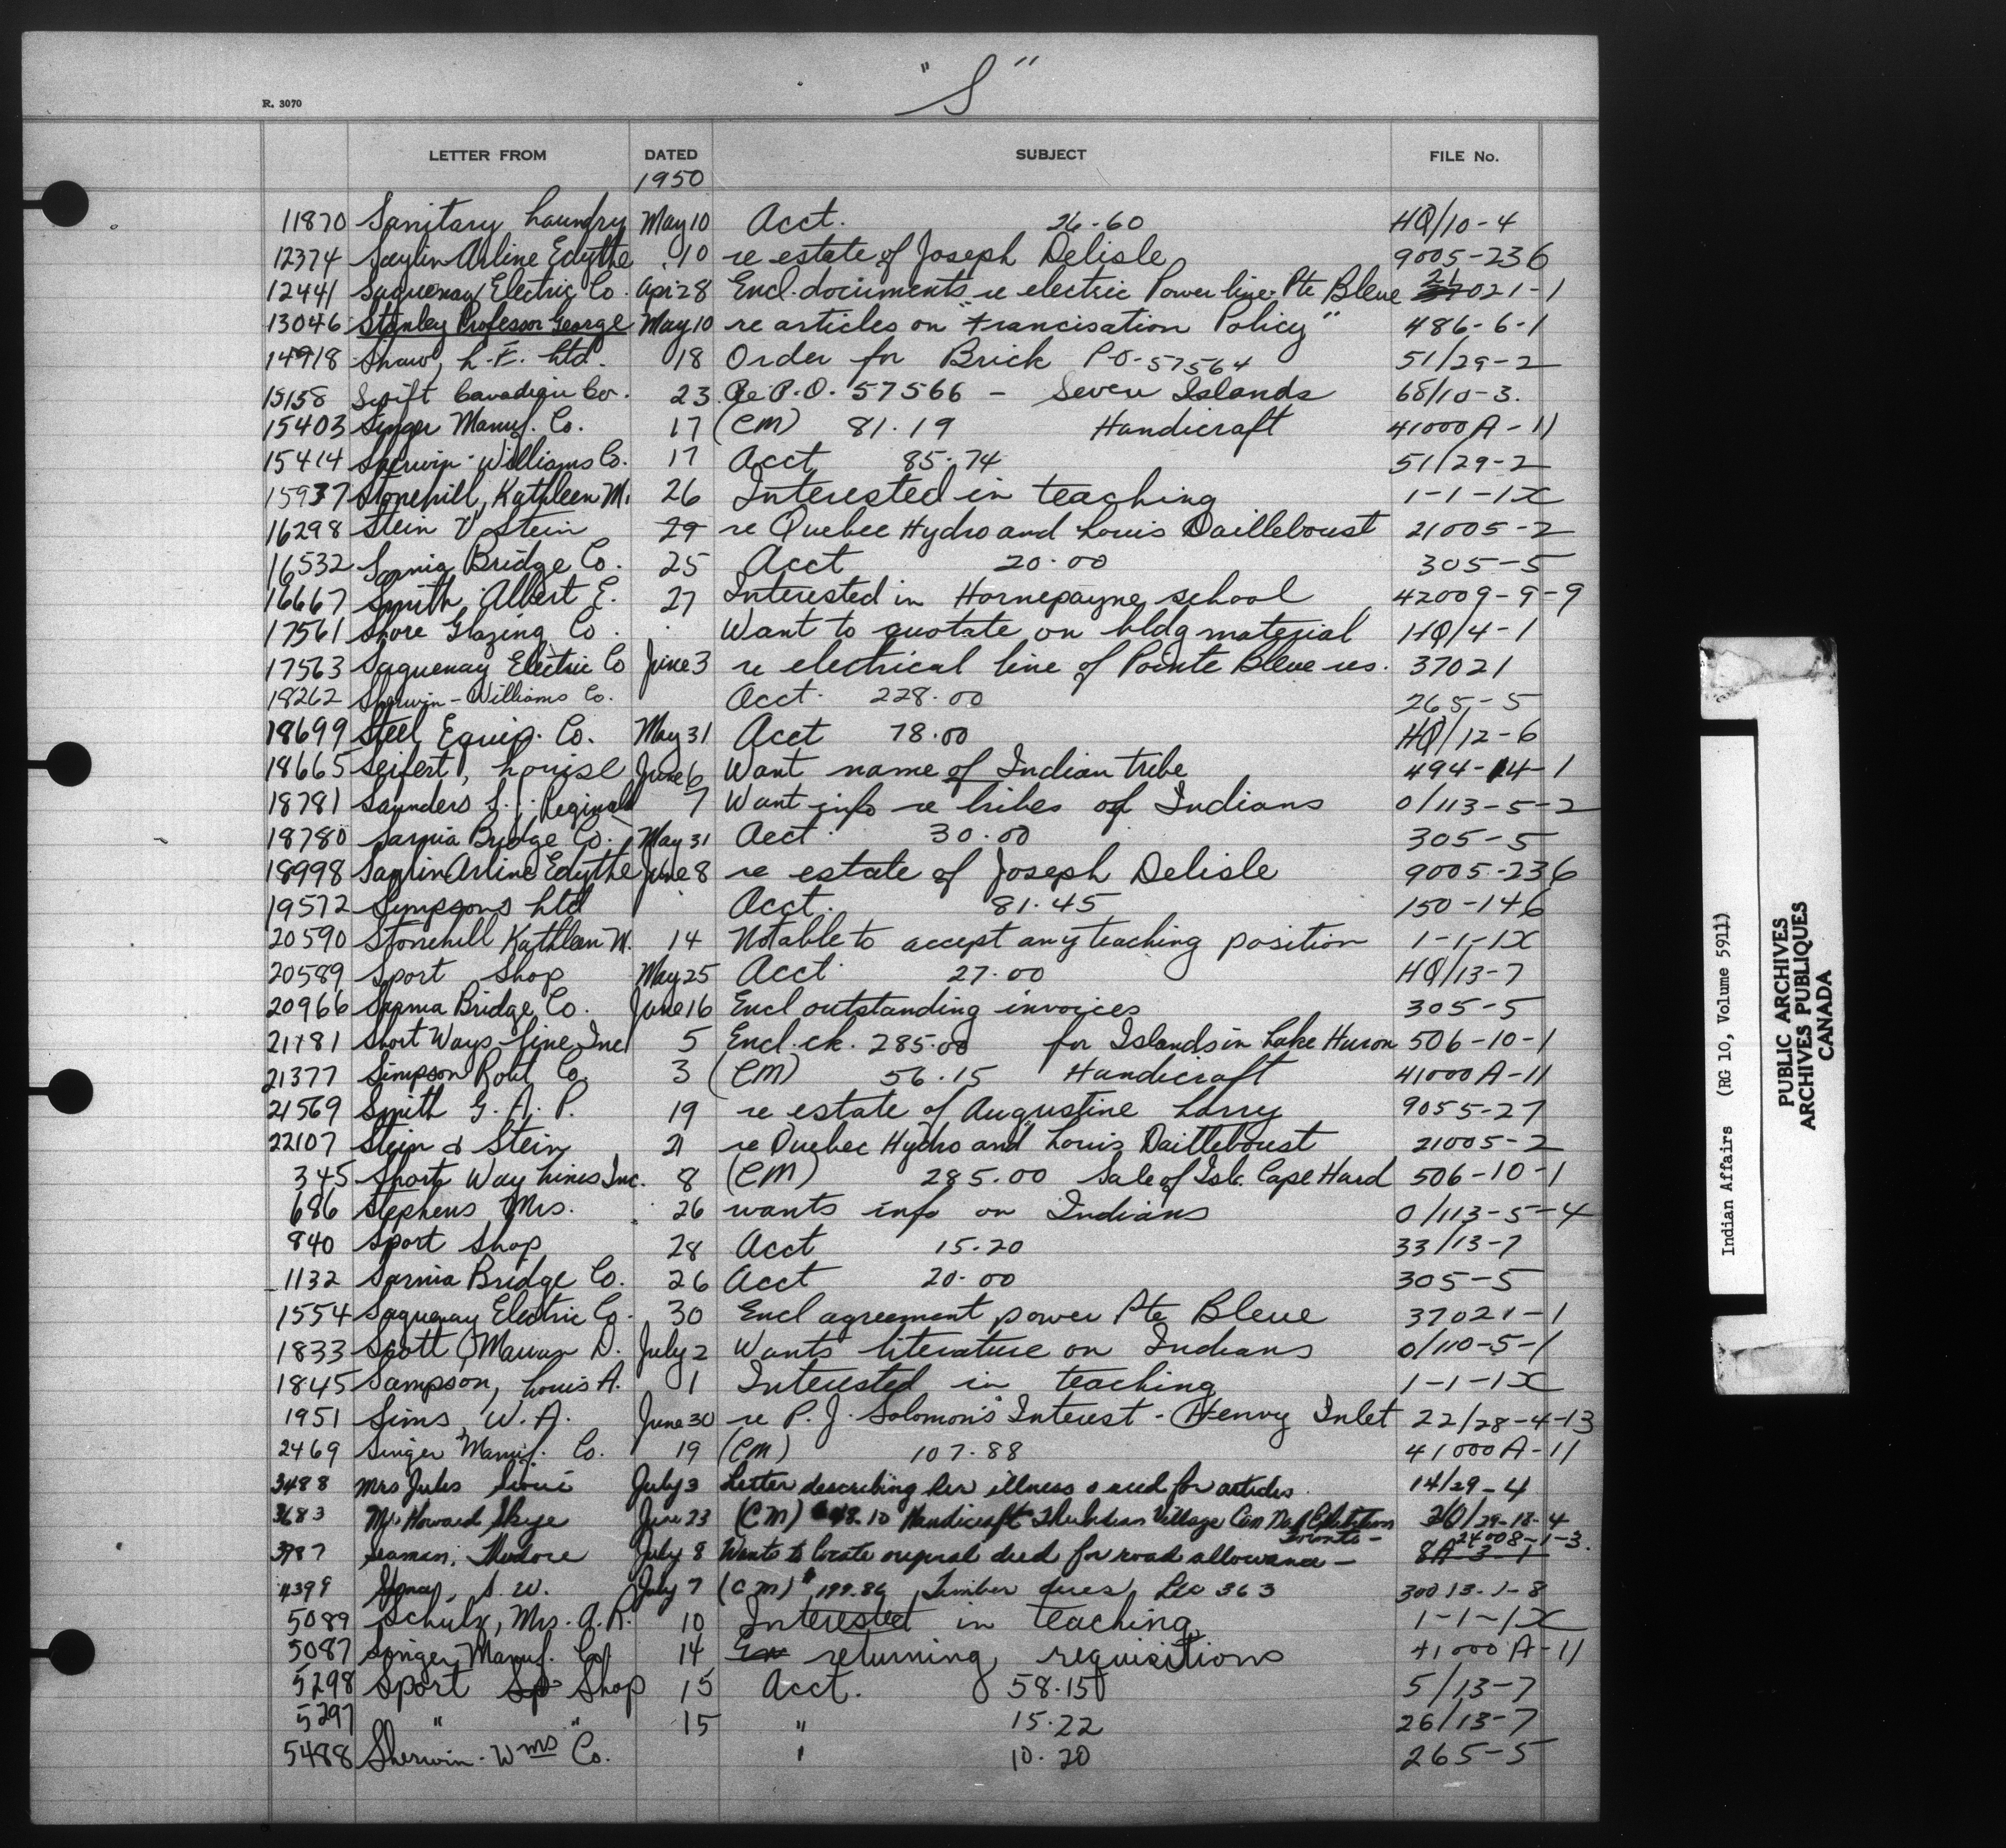 "S"
R. 3070
LETTER FROM DATED SUBJECT FILE No.
1950
11870 Sanitary Laundry May 10 Acct. 26.60 HQ/10-4
12374 Saylin Arline Edythe 10 re estate of Joseph Delisle 9005-236
12441 Saguenay Electric Co. Apr 28 Encl. documents re electric Power line Pte Bleue 021-1
13046 Stanley Professor George May 10 re articles on "Francisation Policy" 486-6-1
14918 Shaw, L. E. Ltd. 18 Order for Brick P.O. 57564 51/29-2
15158 Swift Canadian Co. 23 Re P.O. 57566 - Seven Islands 68/10-3.
15403 Singer Manuf. Co. 17 (CM) 81.19 Handicraft 41000A-11
15414 Sherwin-Williams Co. 17 Acct 85.74 51/29-2
15937 Stonehill, Kathleen M. 26 Interested in teaching 1-1-1X
16298 Stein & Stein 29 re Quebec Hydro and Louis Dailleboust 21005-2
16532 Sarnia Bridge Co. 25 Acct 20.00 305-5
16667 Smith, Albert E. 27 Interested in Hornepayne school 42009-9-9
17561 Shore Glazing Co. Want to quotate on bldg material HQ/4-1
17563 Saguenay Electric Co June 3 re electrical line of Pointe Bleue res. 37021
18262 Sherwin-Williams Co. Acct. 228.00 265-5
18699 Steel Equip. Co. May 31 Acct 78.00 HQ/12-6
18665 Seifert, Louise June 6 Want name of Indian tribe 494-14-1
18781 Saunders S. J. Reginald 7 Want info re tribes of Indians 0/113-5-2
18780 Sarnia Bridge Co. May 31 Acct. 30.00 305-5
18998 Saylin Arline Edythe June 8 re estate of Joseph Delisle 9005-236
19572 Simpsons Ltd Acct. 81.45 150-146
20590 Stonehill Kathleen M. 14 Not able to accept any teaching position 1-1-1X
20589 Sport Shop May 25 Acct. 27.00 HQ/13-7
20966 Sarnia Bridge Co. June 16 Encl outstanding invoices 305-5
21181 Short Ways Line Inc 5 Encl. ck. 285.00 for Islands in Lake Huron 506-10-1
21377 Simpson Robt Co. 3 (CM) 56.15 Handicraft 41000A-11
21569 Smith G. A. P. 19 re estate of Augustine Larry 9055-27
22107 Stein & Stein 21 re Quebec Hydro and Louis Dailleboust 21005-2
345 Short Way Lines Inc. 8 (CM) 285.00 Sale of Isl. Cape Hard 506-10-1
686 Stephens Mrs. 26 wants info on Indians 0/113-5-4
840 Sport Shop 28 Acct 15.20 33/13-7
1132 Sarnia Bridge Co. 26 Acct 20.00 305-5
1554 Saguenay Electric Co. 30 Encl agreement power Pte Bleue 37021-1
1833 Scott, D. July 2 Wants literature on Indians 0/110-5-1
1845 Sampson, Louis A. 1 Interested in teaching 1-1-1X
1951 Sims, W. A. June 30 re P. J. Solomon's Interest - Henvy Inlet 22/28-4-13
2469 Singer Manuf. Co. 19 (CM) 107.88 41000A-11
3488 Mrs Jules Sioui July 3 Letter describing her illness & need for articles. 14/29-4
3683 Howard Skye June 23 (CM) 48.10 Handicraft Indian Village Can Nat Exhibition Toronto - /29-18-4
3787 Seaman, Theodore July 8 Wants to locate original deed for road allowance - 8A-3-1 24008-1-3.
4399 S. W. July 7 (CM) $199.86 Timber dues, Lic 363 30013-1-8
5089 Schulz, Mrs. A. R. 10 Interested in teaching 1-1-1X
5087 Singer Manuf. Co. 14 En returning requisitions 41000A-11
5298 Sport Sp Shop 15 Acct. 58.15 5/13-7
5297 " " 15 " 15.22 26/13-7
5488 Sherwin-Wms Co. " 10.20 265-5
Indian Affairs (RG 10, Volume 5911)
PUBLIC ARCHIVES
ARCHIVES PUBLIQUES
CANADA